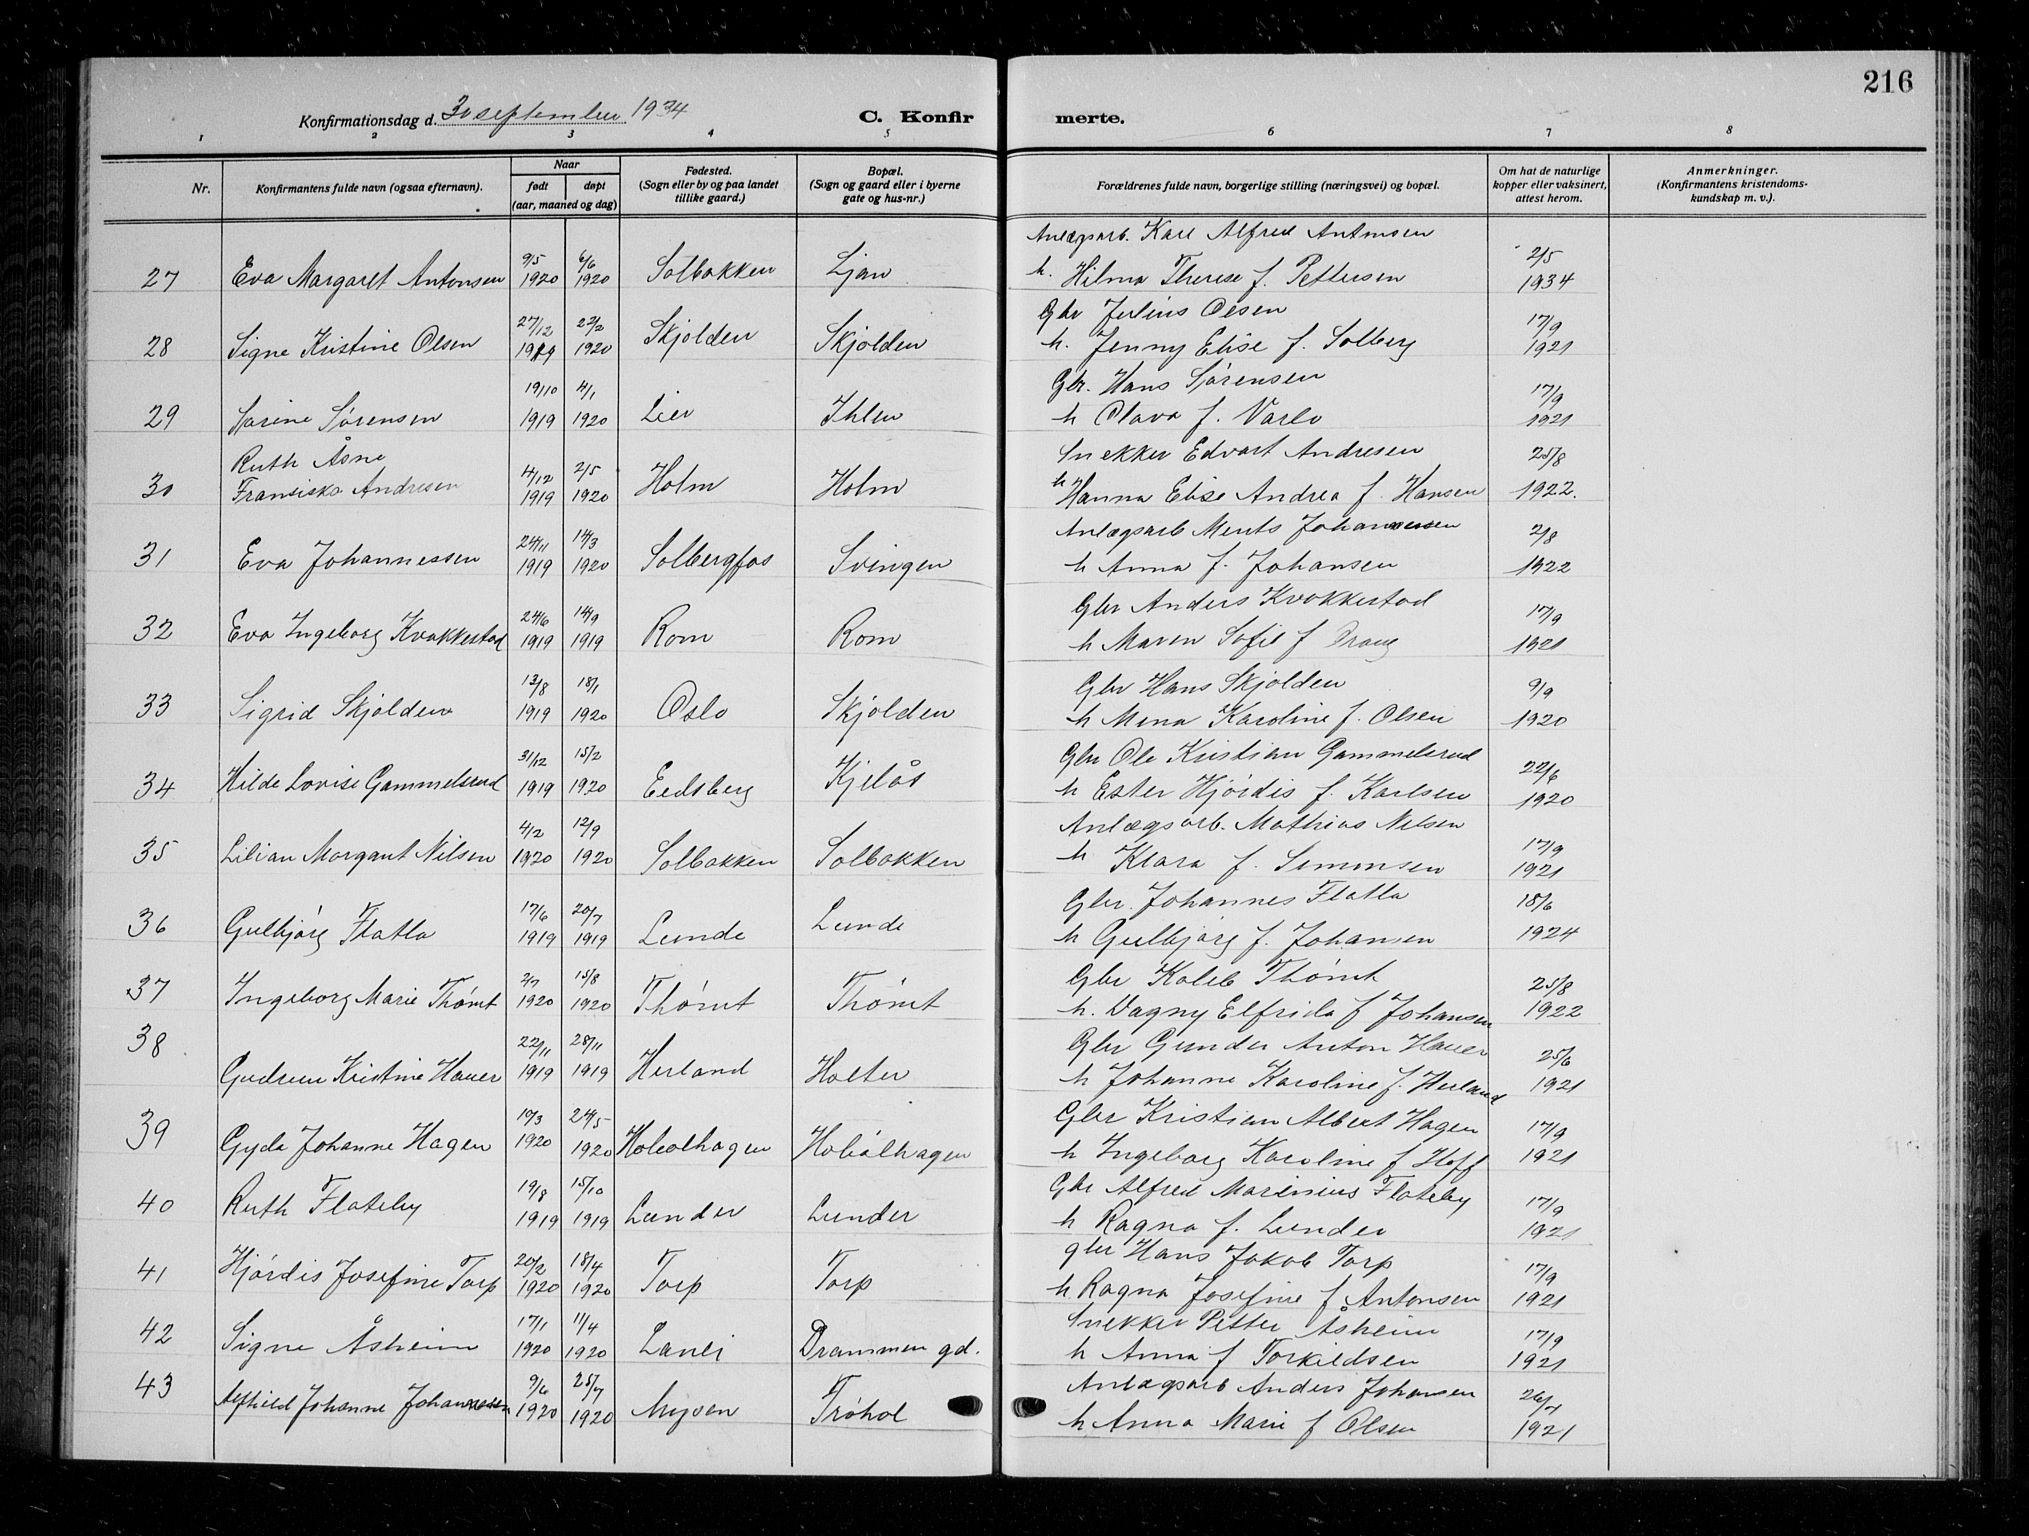 216
Konfirmationsdag d. 30 september 1934 C. Konfir merte.
1 2 3 4 5 6 7 8
Nr. Konfirmantens fulde navn (ogsaa efternavn). Naar født døpt (aar, maaned og dag) Fødested. (Sogn eller by og paa landet tillike gaard.) Bopæl. (Sogn og gaard eller i byerne gate og hus-nr.) Forældrenes fulde navn, borgerlige stilling (næringsvei) og bopæl. Om hat de naturlige kopper eller vaksinert, attest herom. Anmerkninger. (Konfirmantens kristendoms- kundskap m. v.).
Anlægsarb. Karl Alfred Antonsen
27 Eva Margaret Antonsen 9/5 1920 6/6 1920 Solbakken Ljan h. Hilma Therese f. Pettersen 2/5 1934
Gbr Julius Olsen
28 Signe Kristine Olsen 27/12 1919 22/2 1920 Skjolden Skjolden h. Jenny Elise f. Solberg 17/9 1921
Gbr. Hans Sørensen
29 Sørensen 19/10 1919 4/1 1920 Lier Ihlen h Olava f. Varlo 17/9 1921
Ruth Åsne Snekker Edvart Andresen
30 Fransiska Andresen 4/12 1919 2/5 1920 Holm Holm h Hanna Elise Andrea f. Hansen 25/8 1922.
Anlægsarb Ments Johannessen
31 Eva Johannessen 24/11 1919 14/3 1920 Solbergfos Svingen h Anna f. Johansen 2/8 1922
Gbr Anders Kvakkestad
32 Eva Ingeborg Kvakkestad 24/6 1919 14/9 1919 Rom Rom h Maren Sofie f 17/9 1921
Gbr Hans Skjolden
33 Sigrid Skjolden 13/8 1919 18/1 1920 Oslo Skjolden h Mina Karoline f. Olsen 9/9 1920
Gbr Ole Kristian Gammelsrud
34 Hilde Lovise Gammelsrud 31/12 1919 15/2 1920 Eidsberg Kjelås h Ester Hjørdis f. Karlsen 22/6 1920
Anlægsarb. Mathias Nilsen
35 Lilian Margant Nilsen 4/2 1920 12/9 1920 Solbakken Solbakken h Klara f. Simonsen 17/9 1921
Gbr. Johannes Flatla
36 Gulbjørg Flatla 17/6 1919 20/7 1919 Lunde Lunde h Gulbjørg f. Johansen 18/6 1924
Gbr Kaleb Thømt
37 Ingeborg Marie Thømt 2/7 1920 15/8 1920 Thømt Thømt h. Dagny Elfrida f Johansen 25/8 1922
Gbr Gunder Anton Hauer
38 Gudrun Kristine Hauer 22/11 1919 28/11 1919 Herland Holter h Johanne Karoline f. Herland 25/6 1921
Gbr Kristian Albert Hagen
39 Gyda Johanne Hagen 10/3 1920 24/5 1920 Hobølhagen Hobølhagen h Ingeborg Karoline f Hoff 17/9 1921
Gbr Alfred Marinius Flateby
40 Ruth Flateby 19/8 1919 15/10 1919 Lunder Lunder h Ragna f. Lunder 17/9 1921
gbr Hans Jakob Torp
41 Hjørdis Josefine Torp 20/2 1920 18/4 1920 Torp Torp h Ragna Josefine f Antonsen 17/9 1921
Snekker Petter Åsheim
42 Signe Åsheim 17/1 1920 11/4 1920 Drammen gd. h Anna f Torkildsen 17/9 1921
Anlægsarb Anders Johansen
43 Alfhild Johanne Johannessen 9/6 1920 25/7 1920 Mysen Trøhol h Anna Marie f Olsen 1921